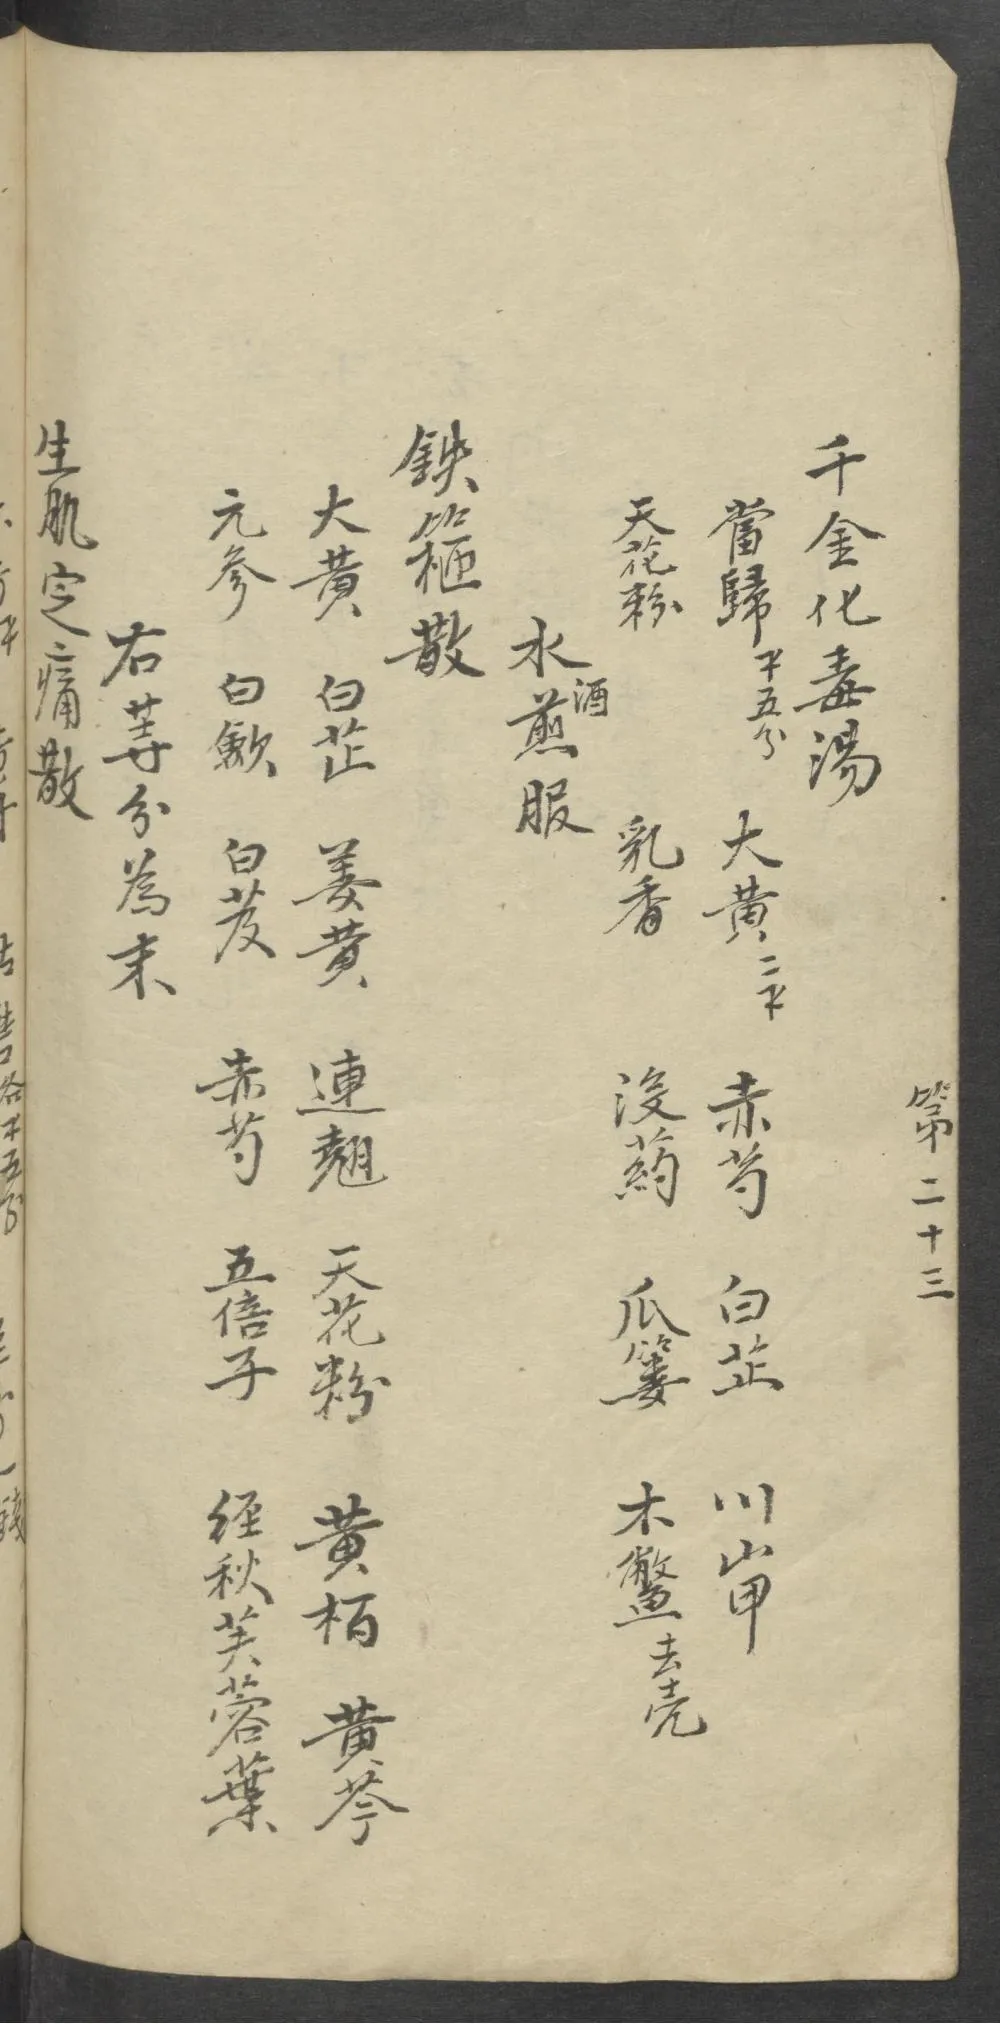 第二十三
千金化毒湯
當歸 子五分 大黄 二子 赤芍 白芷 川山甲
天花粉 乳香 沒药 瓜蔞 木鱉 去壳
水酒煎服
鉄箍散
大黄 白芷 姜黄 連翹 天花粉 黄栢 黄芩
元參 白歛 白芨 赤芍 五倍子 经秋芙蓉葉
右䓁分為末
生肌定痛散